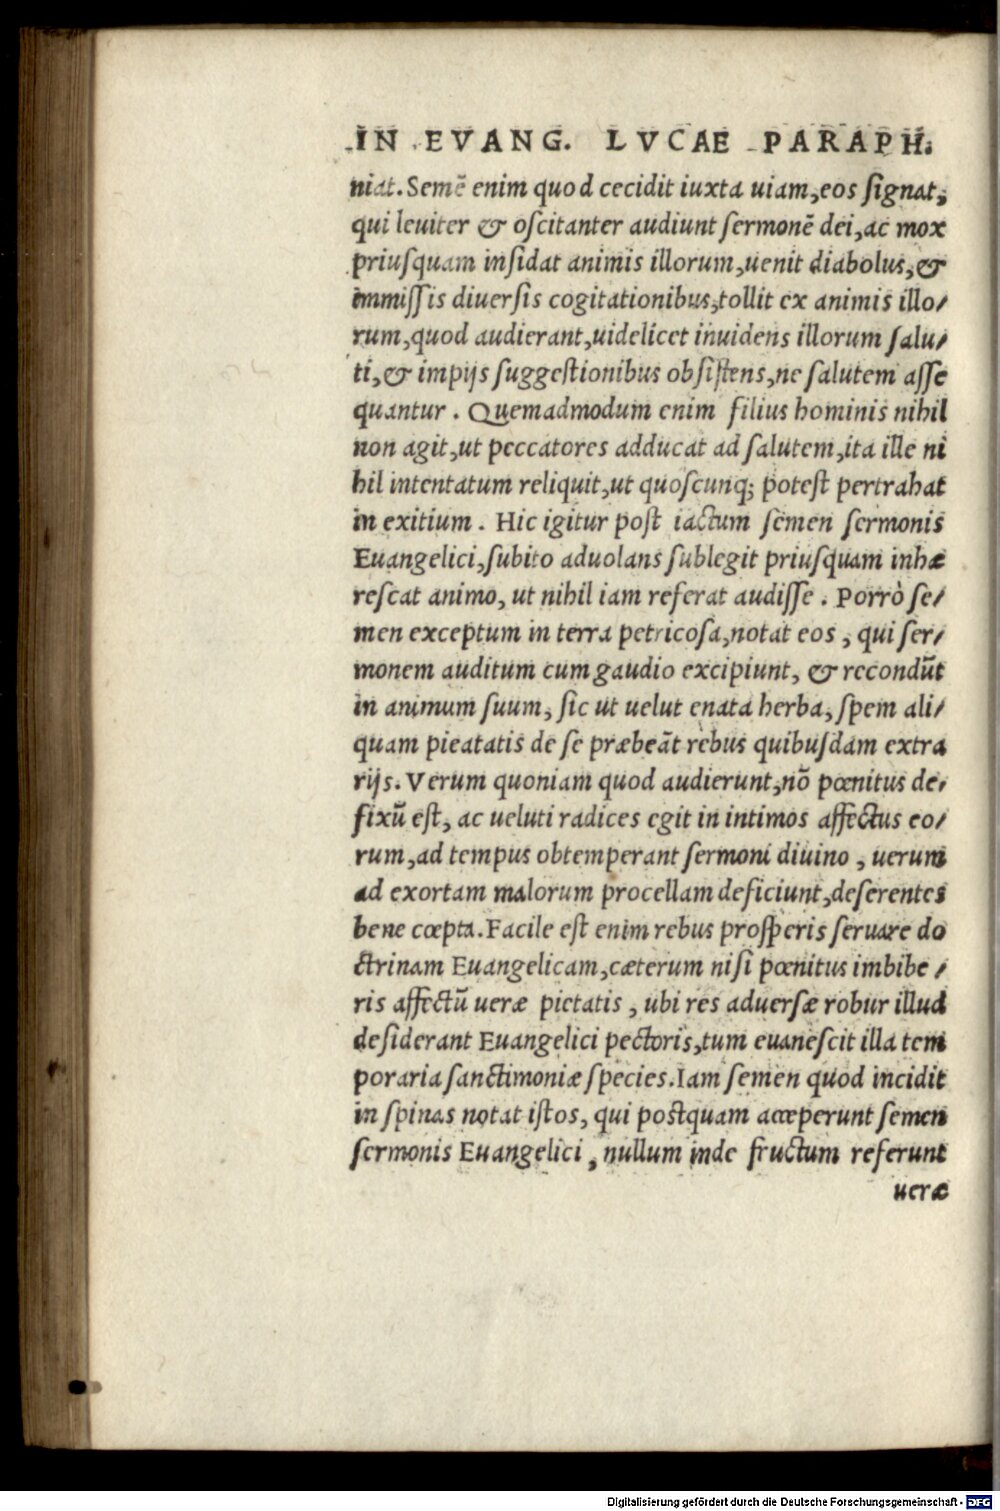 IN EVANG. LVCAE PARAPH.
niat. Semē enim quod cecidit iuxta uiam, eos ſignat,
qui leuiter & oſcitanter audiunt ſermonē dei, ac mox
priuſquam inſidat animis illorum, uenit diabolus, &
immiſſis diuerſis cogitationibus, tollit ex animis illo/
rum, quod audierant, uidelicet inuidens illorum ſalu/
ti, & impijs ſuggeſtionibus obſiſtens, ne ſalutem aſſe
quantur . Quemadmodum enim filius hominis nihil
non agit, ut peccatores adducat ad ſalutem, ita ille ni
hil intentatum reliquit, ut quoſcunq; poteſt pertrahat
in exitium . Hic igitur poſt iactum ſemen ſermonis
Euangelici, ſubito aduolans ſublegit priuſquam inhæ
reſcat animo, ut nihil iam referat audiſſe . Porrò ſe/
men exceptum in terra petricoſa, notat eos , qui ſer/
monem auditum cum gaudio excipiunt, & recondūt
in animum ſuum, ſic ut uelut enata herba, ſpem ali/
quam pieatatis de ſe præbeāt rebus quibuſdam extra
rijs. Verum quoniam quod audierunt, nō pœnitus de/
fixū eſt, ac ueluti radices egit in intimos affectus eo/
rum, ad tempus obtemperant ſermoni diuino , uerum
ad exortam malorum procellam deficiunt, deſerentes
bene cœpta. Facile eſt enim rebus proſperis ſeruare do
ctrinam Euangelicam, cæterum niſi pœnitus imbibe /
ris affectū ueræ pietatis , ubi res aduerſæ robur illud
deſiderant Euangelici pectoris, tum euaneſcit illa tem
poraria ſanctimoniæ ſpecies. Iam ſemen quod incidit
in ſpinas notat iſtos, qui poſtquam acceperunt ſemen
ſermonis Euangelici , nullum inde fructum referunt
ueræ
Digitalisierung gefördert durch die Deutsche Forschungsgemeinschaft - DFG